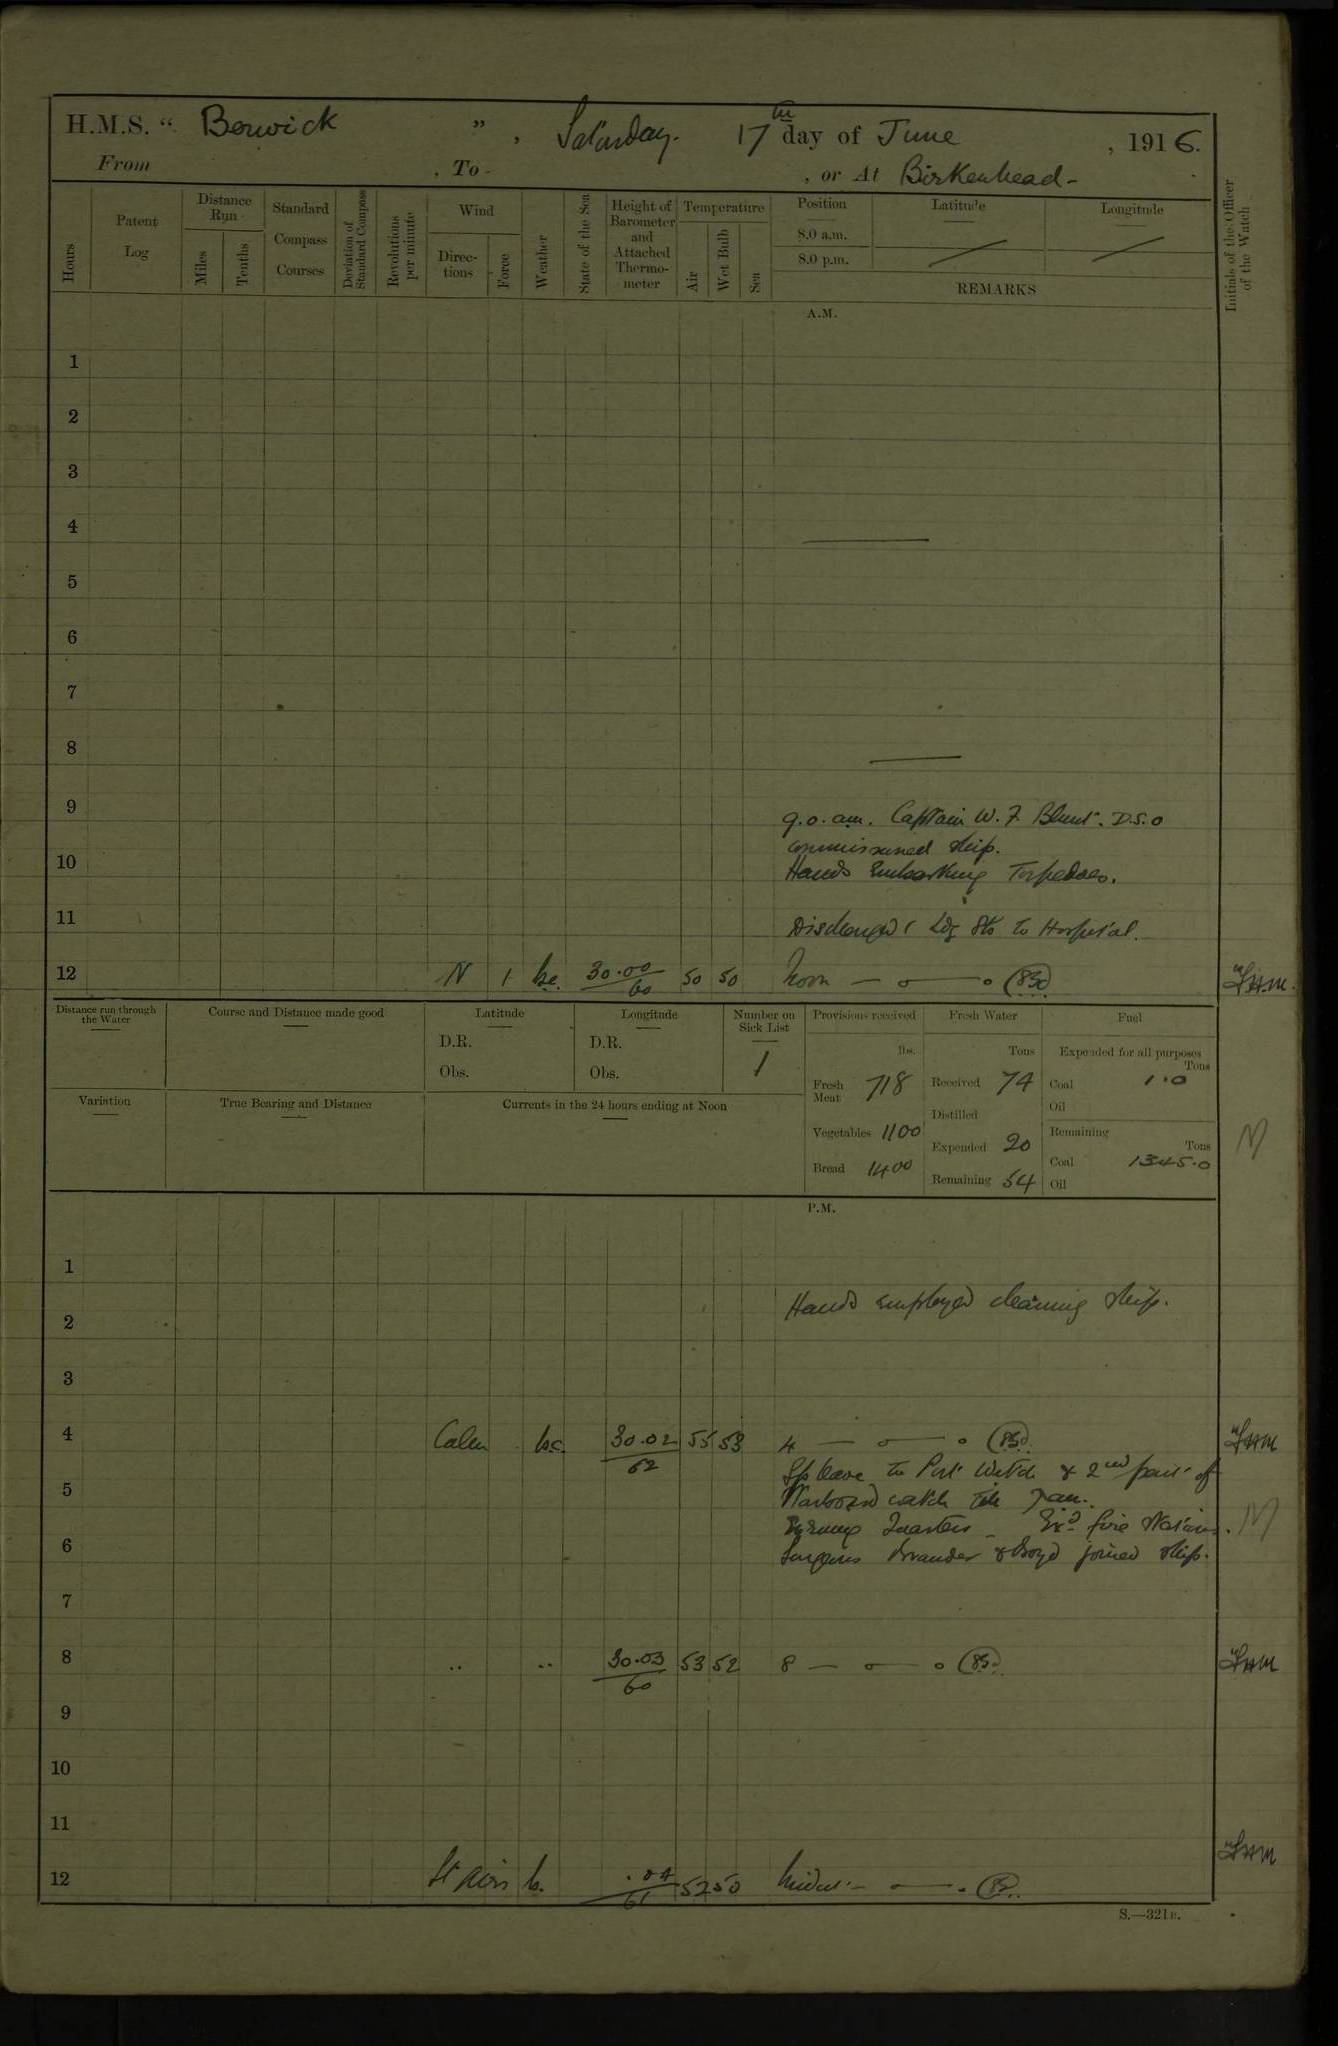 H.M.S. “ Berwick ” , Saturday. 17th day of June , 1916.
From , To - , or At Birkenhead -
Hours
Patent Log
Distance Run
Miles
Tenths
Standard Compass Courses
Deviation of Standard Compass
Revolutions per minute
Wind
Direc-tions
Force
Weather
State of the Sea
Height of Barometer and Attached Thermo-meter
Temperature
Air
Wet Bulb
Sea
Position
8.0 a.m.
8.0 p.m.
Latitude
Longitude
REMARKS
Initials of the Officer of the Watch
A.M.
1
2
3
4
5
6
7
8
9
9.0. am. Captain W. F. Blunt. D.S.O
commissioned ship.
10
Hands Embarking Torpedoes.
11
Discharged 1 Ldg Sto to Hospital.
12 N 1 bc. 30.00 50 50 Noon
60
Distance run through the Water
Course and Distance made good
Latitude
D.R.
Obs.
Longitude
D.R.
Obs.
Number on Sick List
1
Variation
True Bearing and Distance
Currents in the 24 hours ending at Noon
Provisions received
lbs.
Fresh Meat 718
Vegetables 1100
Bread 1400
Fresh Water
Tons
Received 74
Distilled
Expended 20
Remaining 54
Fuel
Expended for all purposes
Tons
Coal 1.0
Oil
Remaining
Tons
Coal 1345.0
Oil
P.M.
1
Hands employed cleaning ship.
2
3
4 Calm bc. 30.02 55 53 4
62
leave to Port Watch & 2nd part of
5
Starboard watch till 7 am.
Evening Quarters - Exd fire Stations.
6
Surgeons & Boyd joined ship.
7
8 .. .. 30.03 53 52 8
60
9
10
11
12 Lt airs b. .04 52 50 Midnt.
61
S.—321B.